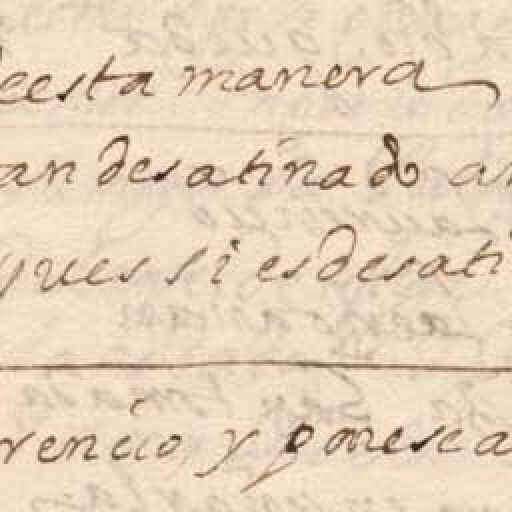 deesta manera
an desatinado an
ques si es desati
rencio, y ponesea